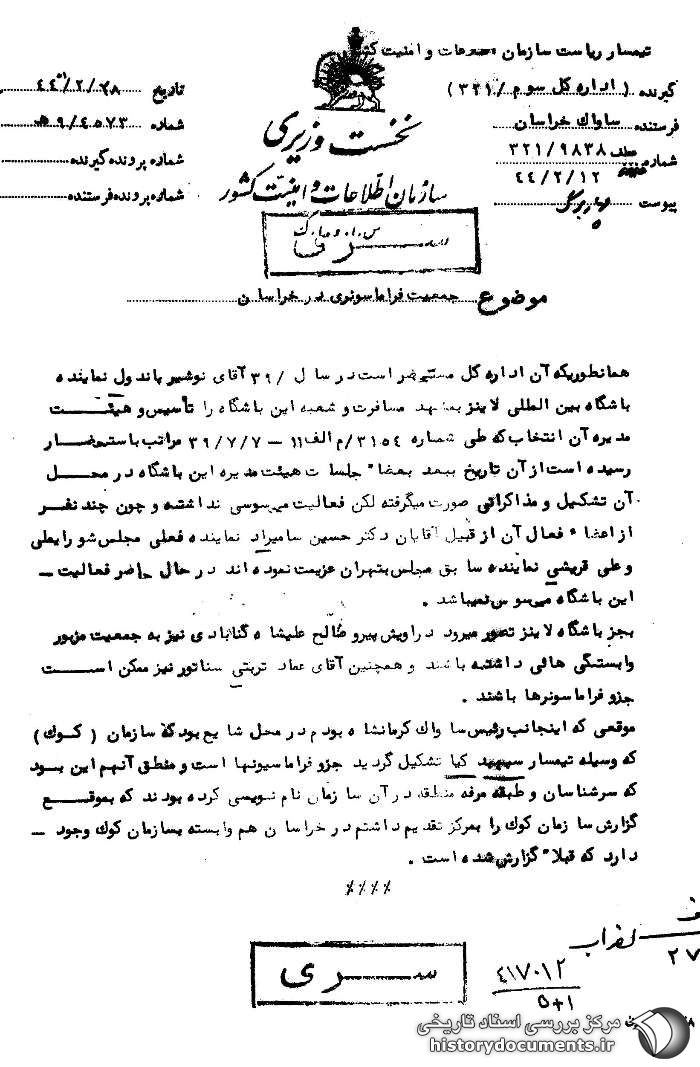 تیمسار ریاست سازمان اطلاعات و امنیت کشور
گیرنده ( اداره کل سوم / ۳۲۱ )
فرستنده ساواك خراسان
شماره ۳۲۱/۹۸۳۸
۴۴/۲/۱۲
پیوست
نخست وزیری
سازمان اطلاعات و امنیت کشور
تاریخ ۴۴/۲/۲۸
شماره ۹/۴۵۷۳ ﻫ
شماره پرونده گیرنده
شماره پرونده فرستنده
سری
موضوع جمعیت فراماسونری در خراسان
همانطوریکه آن اداره کل مستحضر است در سال /۳۹ آقای نوشیر باندول نماینده
باشگاه بین المللی لاینز بمشهد مسافرت و شعبه این باشگاه را تأسیس و هیئت
مدیره آن انتخاب که طی شماره ۳۱۵۴/م الف ۱۱ – ۳۹/۷/۷ مراتب باستحضار
رسیده است از آن تاریخ ببعد بعضاً جلسات هیئت مدیره این باشگاه در محل
آن تشکیل و مذاکراتی صورت میگرفته لکن فعالیت محسوسی نداشته و چون چند نفر
از اعضاء فعال آن از قبیل آقایان دکتر حسین سامیراد نماینده فعلی مجلس شورایملی
و علی قریشی نماینده سابق مجلس بتهران عزیمت نموده اند در حال حاضر فعالیت –
این باشگاه محسوس نمیباشد .
بجز باشگاه لاینز تصور میرود دراویش پیرو صالح علیشاه گنابادی نیز به جمعیت مزبور
وابستگی هائی داشته باشند و همچنین آقای عماد تربتی سناتور نیز ممکن است
جزو فراماسونرها باشند .
موقعی که اینجانب رئیس ساواك کرمانشاه بودم در محل شایع بود که سازمان ( کوك )
که وسیله تیمسار سپهبد کیا تشکیل گردید جزو فراماسیونها است و منطق آنهم این بود
که سرشناسان و طبقه مرفه منطقه در آن سازمان نام نویسی کرده بودند که بموقع
گزارش سازمان کوك را بمرکز تقدیم داشتم در خراسان هم وابسته بسازمان کوك وجود –
دارد که قبلاً گزارش شده است .
٪٪٪٪
سری
۴۱۷۰۱۲
۵+۱
۲۷
مرکز بررسی اسناد تاریخی
historydocuments.ir